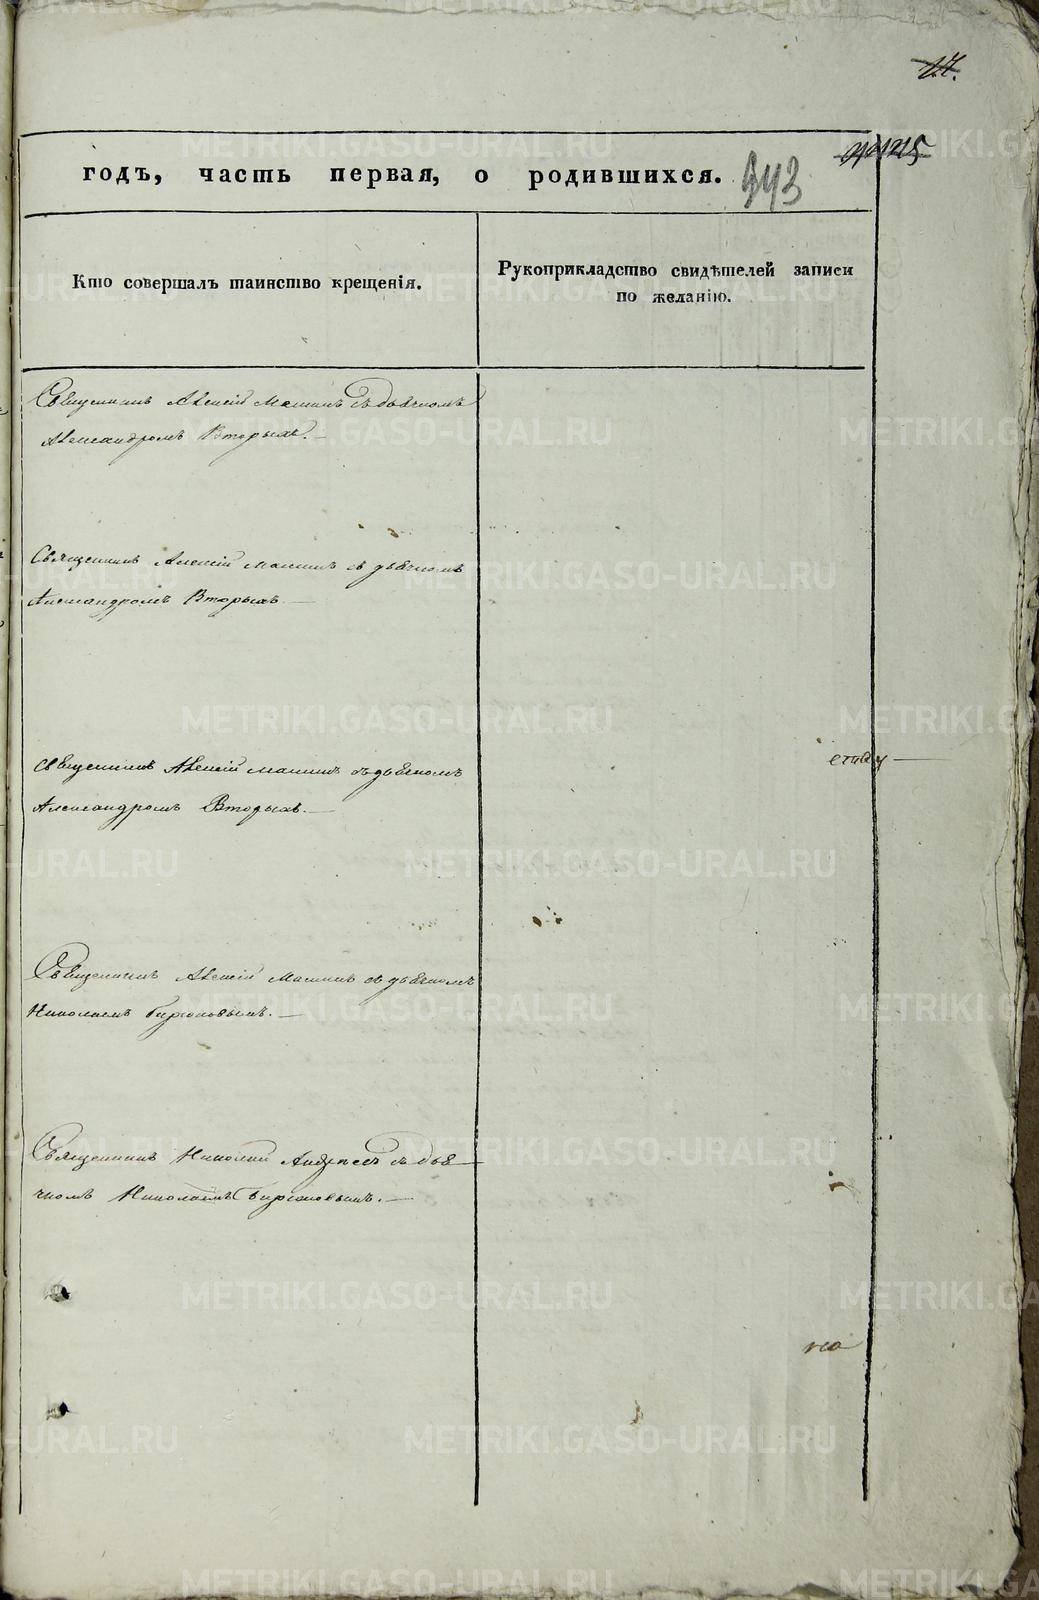 17.
годъ, часть первая, о родившихся. 343
Кто совершалъ таинство крещенія.
Рукоприкладство свидѣтелей записи
по желанію.
Священникъ Алексій Машинъ съ дьячкомъ
Александромъ Вторыхъ.
Священникъ Алексій Машинъ съ дьячкомъ
Александромъ Вторыхъ
Священникъ Алексій Машинъ съ дьячкомъ
Александромъ Вторыхъ.
Священникъ Алексій Машинъ съ дьячкомъ
Николаемъ
Священникъ Николай съ дья
чкомъ Николаемъ
на
METRIKI.GASO-URAL.RU